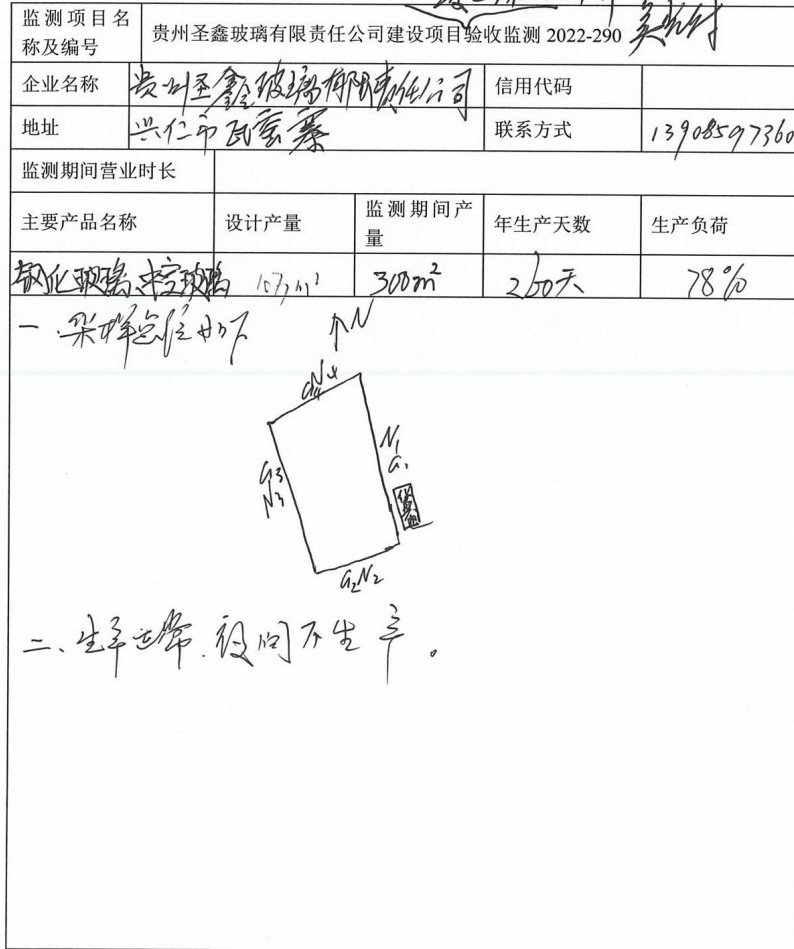 监测项目名
称及编号
贵州圣鑫玻璃有限责任公司建设项目验收监测 2022-290
企业名称 贵州圣鑫玻璃有限责任公司 信用代码
地址 兴仁市瓦窑寨 联系方式 13908597360
监测期间营业时长
主要产品名称 设计产量 监测期间产
量 年生产天数 生产负荷
钢化玻璃、中空玻璃 300m² 260天 78%
一、采样点位如下
N
G4 N4
N1
G1
G3
N3
G2N2
二、生产正常,夜间不生产。